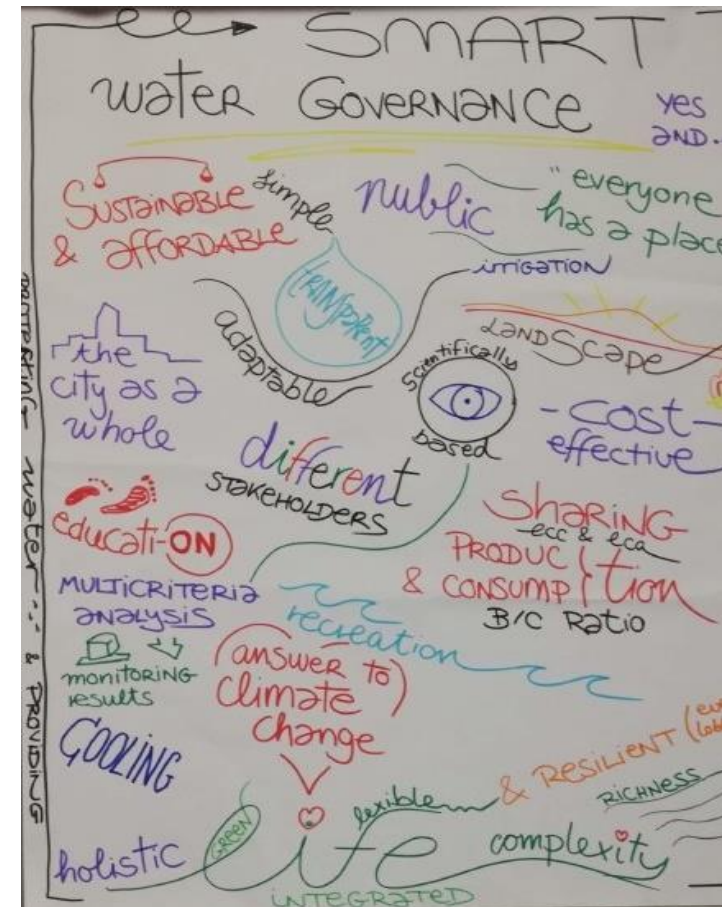 SMART
water GOVERNANCE
yes
AND.
SUSTAINABLE
& AFFORDABLE
simple
public
"everyone
has a place
irrigation
transparent
adaptable
LANDSCAPE
the
city as a
whole
scientifically
based
- COST -
effective
different
STAKEHOLDERS
educati-ON
SHARING
ecc & eca
PRODUC
& CONSUMP tion
B/C Ratio
MULTICRITERIA
ANALYSIS
recreation
monitoring
results
(answer to)
climate
change
COOLING
& RESILIENT
RICHNESS
flexible
holistic
GREEN
life
complexity
INTEGRATED
protecting water & PROVIDING